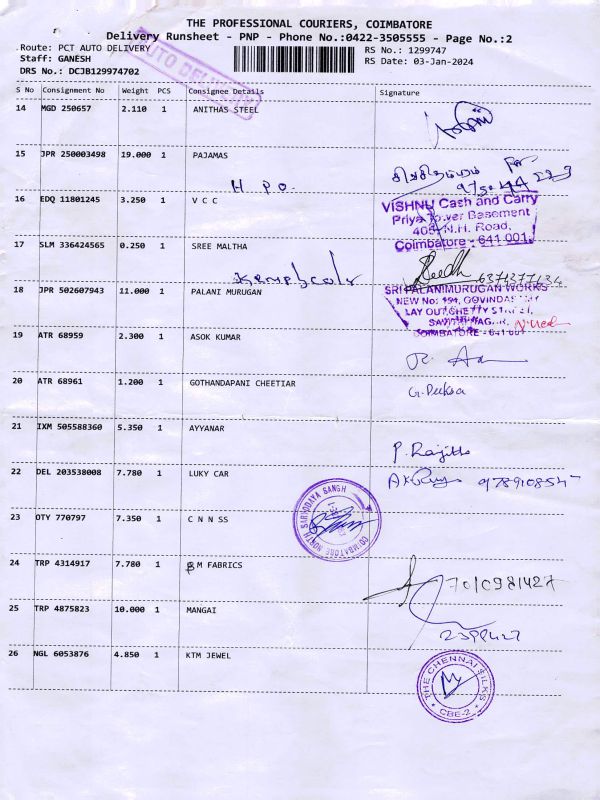 THE PROFESSIONAL COURIERS, COIMBATORE
Delivery Runsheet - PNP - Phone No.:0422-3505555 - Page No.:2
Route: PCT AUTO DELIVERY
RS No.: 1299747
Staff: GANESH
RS Date: 03-Jan-2024
DRS No.: DCJB129974702
AUTO DELIVERY
S No Consignment No Weight PCS Consignee Details Signature
14 MGD 250657 2.110 1 ANITHAS STEEL
15 JPR 250003498 19.000 1 PAJAMAS
H PO.
16 EDQ 11801245 3.250 1 V C C
VISHNU Cash and Carry
Priya Tower Basement
N.H. Road,
Coimbatore - 641 001.
17 SLM 336424565 0.250 1 SREE MALTHA
18 JPR 502607943 11.000 1 PALANI MURUGAN
SRI PALANIMURUGAN WORKS
NEW No: 194, GOVINDAS
LAY OUT, CHETTY STREET,
COIMBATORE - 641 001
19 ATR 68959 2.300 1 ASOK KUMAR
20 ATR 68961 1.200 1 GOTHANDAPANI CHEETIAR
21 IXM 505588360 5.350 1 AYYANAR
P. Rajitha
22 DEL 203538008 7.780 1 LUKY CAR
23 OTY 770797 7.350 1 C N N SS
COIMBATORE NORTH SARVODAYA SANGH
24 TRP 4314917 7.780 1 B M FABRICS
7010981427
25 TRP 4875823 10.000 1 MANGAI
26 NGL 6053876 4.850 1 KTM JEWEL
THE CHENNAI SILKS
CBE-2